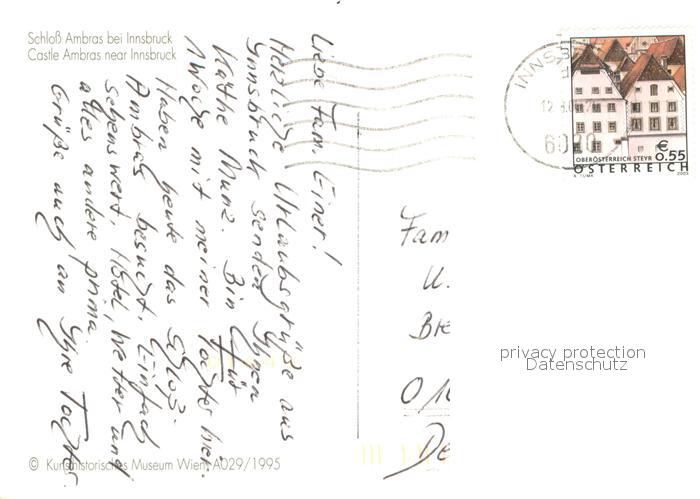 Schloß Ambras bei Innsbruck
Castle Ambras near Innsbruck
Liebe Fam. Einer!
Herzliche Urlaubsgrüße aus
Innsbruck sendet Ihnen
Käthe Munz. Bin für
1 Woche mit meiner Tochter hier.
Haben heute das Schloß
Ambras besucht. Einfach
sehenswert. Hotel, Wetter und
alles andere prima.
Grüße auch an Ihre Tochter.
© Kunsthistorisches Museum Wien, A029/1995
INNS
12.
6020
OBERÖSTERREICH STEYR
€ 0.55
ÖSTERREICH
A. TUMA
2003
Fam
U.
Bre
O 1
De
privacy protection
Datenschutz